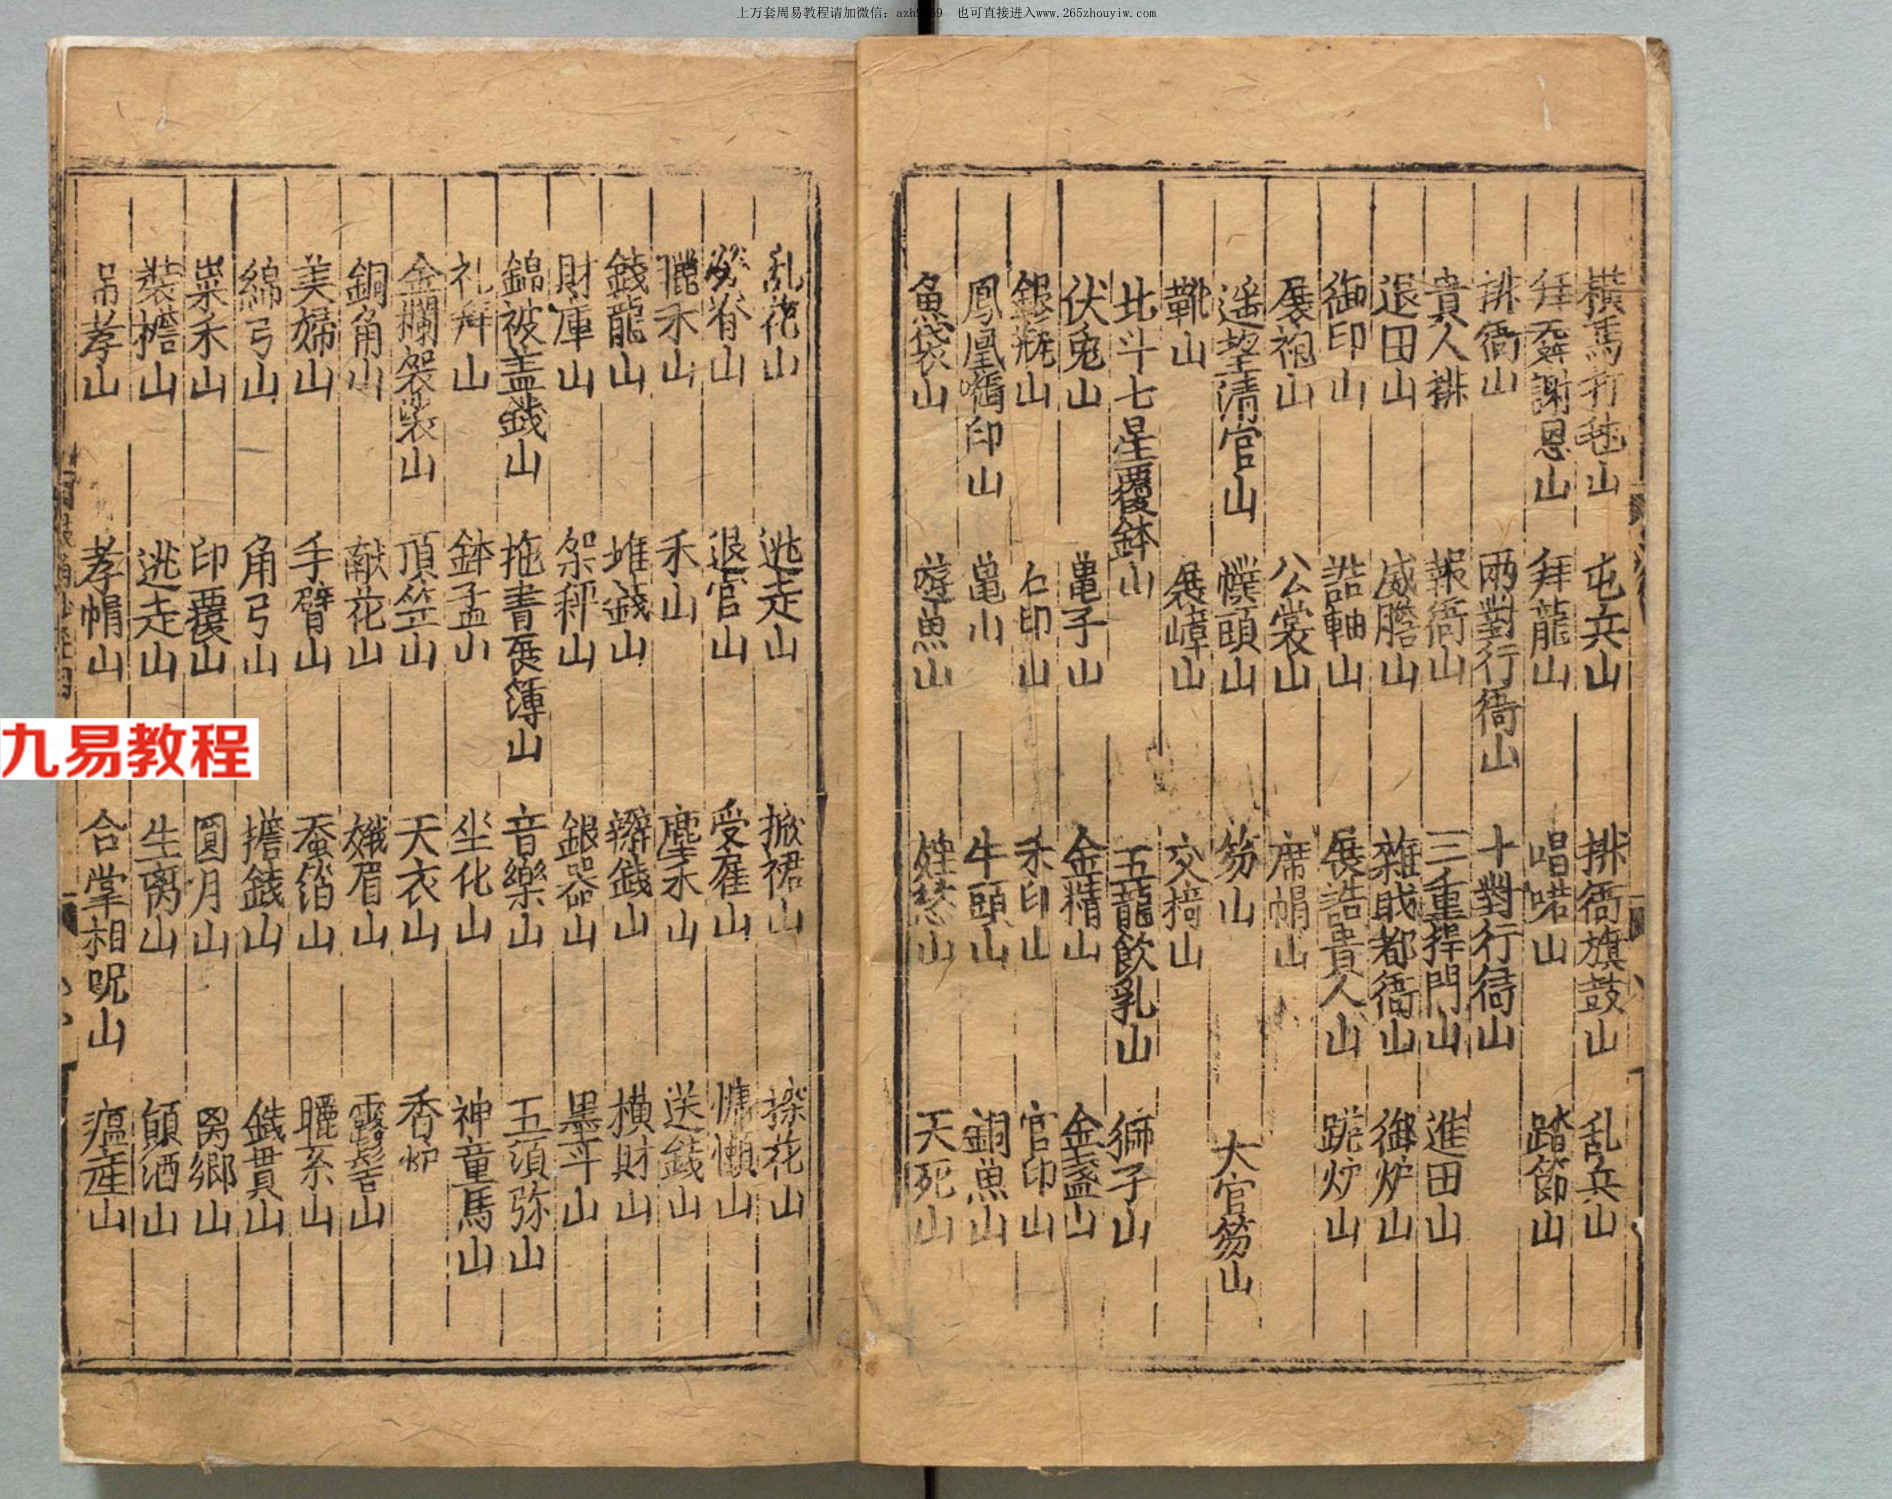 上万套周易教程请加微信: 也可直接进入www.265zhouyiw.com
橫馬打毬山 屯兵山 排衙旗鼓山 乱兵山
拜舞謝恩山 拜龍山 唱喏山 踏節山
排衙山 兩對行衙山 十對行衙山
貴人排 報衙山 三重捍門山 進田山
退田山 威膽山 雜職都衙山 御炉山
御印山 誥軸山 展誥貴人山 踀炉山
展袍山 公裳山 席帽山
遥望清官山 幞頭山 笏山 大官笏山
靴山 展幛山 交掎山
北斗七星覆鉢山 五龍飲乳山 獅子山
伏兎山 亀子山 金精山 金盞山
銀瓶山 石印山 禾印山 官印山
鳳凰啣印山 亀山 牛頭山 銅魚山
魚袋山 遊魚山 山 天死山
乱花山 逃走山 掀裙山 探花山
脊山 退官山 受雇山 慵懶山
禾山 禾山 塵禾山 送錢山
錢龍山 堆錢山 辮錢山 橫財山
財庫山 架秤山 銀器山 墨斗山
錦被盖錢山 拖書展簿山 音樂山 五須弥山
礼拜山 鉢盂山 坐化山 神童馬山
金襴袈裟山 頂笠山 天衣山 香炉
銅角山 献花山 娥眉山 山
美婦山 手臂山 蚕箔山 山
綿弓山 角弓山 擔錢山 錢貫山
菓禾山 印覆山 圓月山 离鄉山
裝擔山 逃走山 生离山 顛酒山
吊孝山 孝帽山 合掌相呪山 瘟㾊山
九易教程